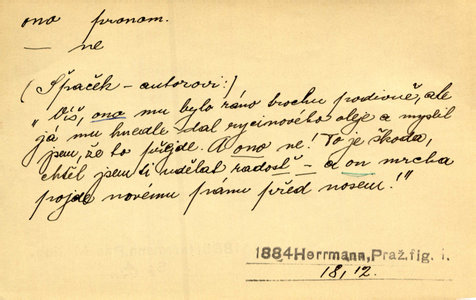 ono pronom.
— ne
(Špaček – autorovi:)
„Víš, ono mu bylo ráno trochu podivně, ale
já mu hnedle dal rycinového oleje a myslil
jsem, že to přejde. A ono ne! To je škoda,
chtěl jsem ti udělat radosť – a on mrcha
pojde novému pánu před nosem!"
1884 Herrmann, Praž. fig. i.
18, 12.